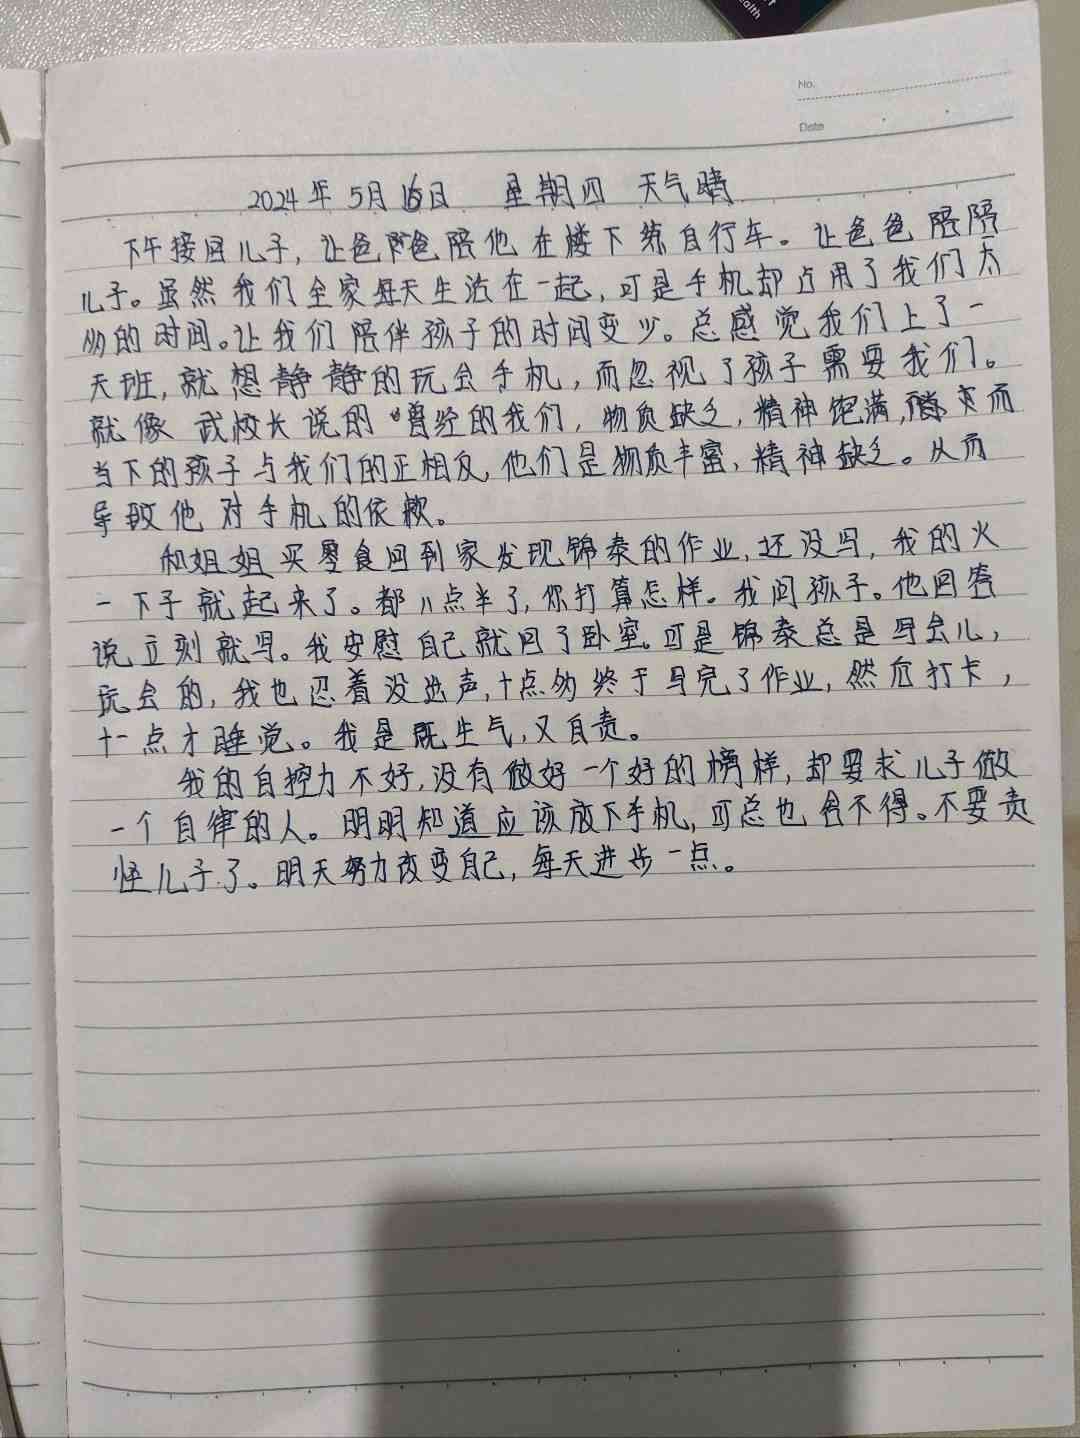 alth
No.
Date
2024年5月16日 星期四 天气晴
下午接回儿子,让爸爸陪他在楼下练自行车。让爸爸陪陪
儿子。虽然我们全家每天生活在一起,可是手机却占用了我们太
多的时间。让我们陪伴孩子的时间变少。总感觉我们上了一
天班,就想静静的玩会手机,而忽视了孩子需要我们。
就像武校长说的“曾经的我们,物质缺乏,精神饱满,而
当下的孩子与我们的正相反,他们是物质丰富,精神缺乏。从而
导致他对手机的依赖。
和姐姐买零食回到家发现锦泰的作业,还没写,我的火
一下子就起来了。都八点半了,你打算怎样。我问孩子。他回答
说立刻就写。我安慰自己就回了卧室。可是锦泰总是写会儿,
玩会的,我也忍着没出声,十点多终于写完了作业,然后打卡,
十一点才睡觉。我是既生气,又自责。
我的自控力不好,没有做好一个好的榜样,却要求儿子做
一个自律的人。明明知道应该放下手机,可总也舍不得。不要责
怪儿子了。明天努力改变自己,每天进步一点。